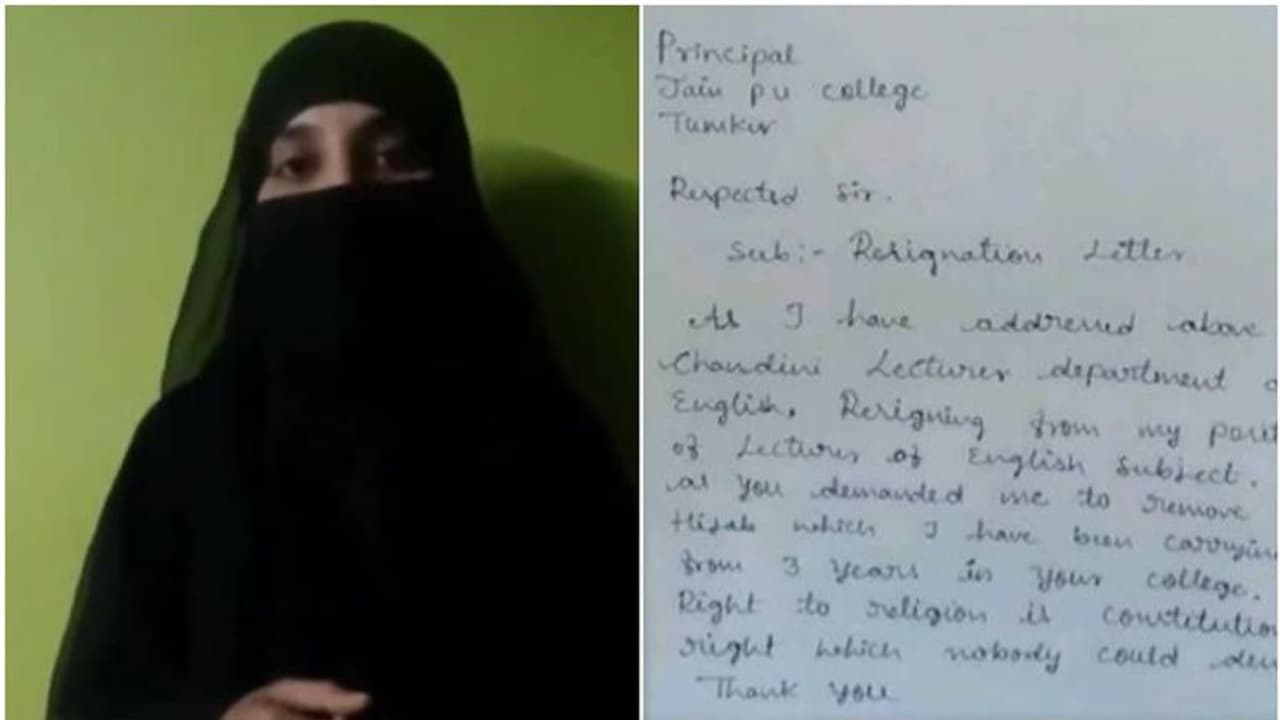 Principal
Jain pu college
Tumkur
Respected Sir.
Sub:- Resignation Letter
As I have addressed above
Chandini Lecturer department o
English, Resigning from my posit
of Lecturer of English Subject.
as you demanded me to remove
Hijab which I have been carrying
from 3 years in your college.
Right to religion is constitution
right which nobody could den
Thank you